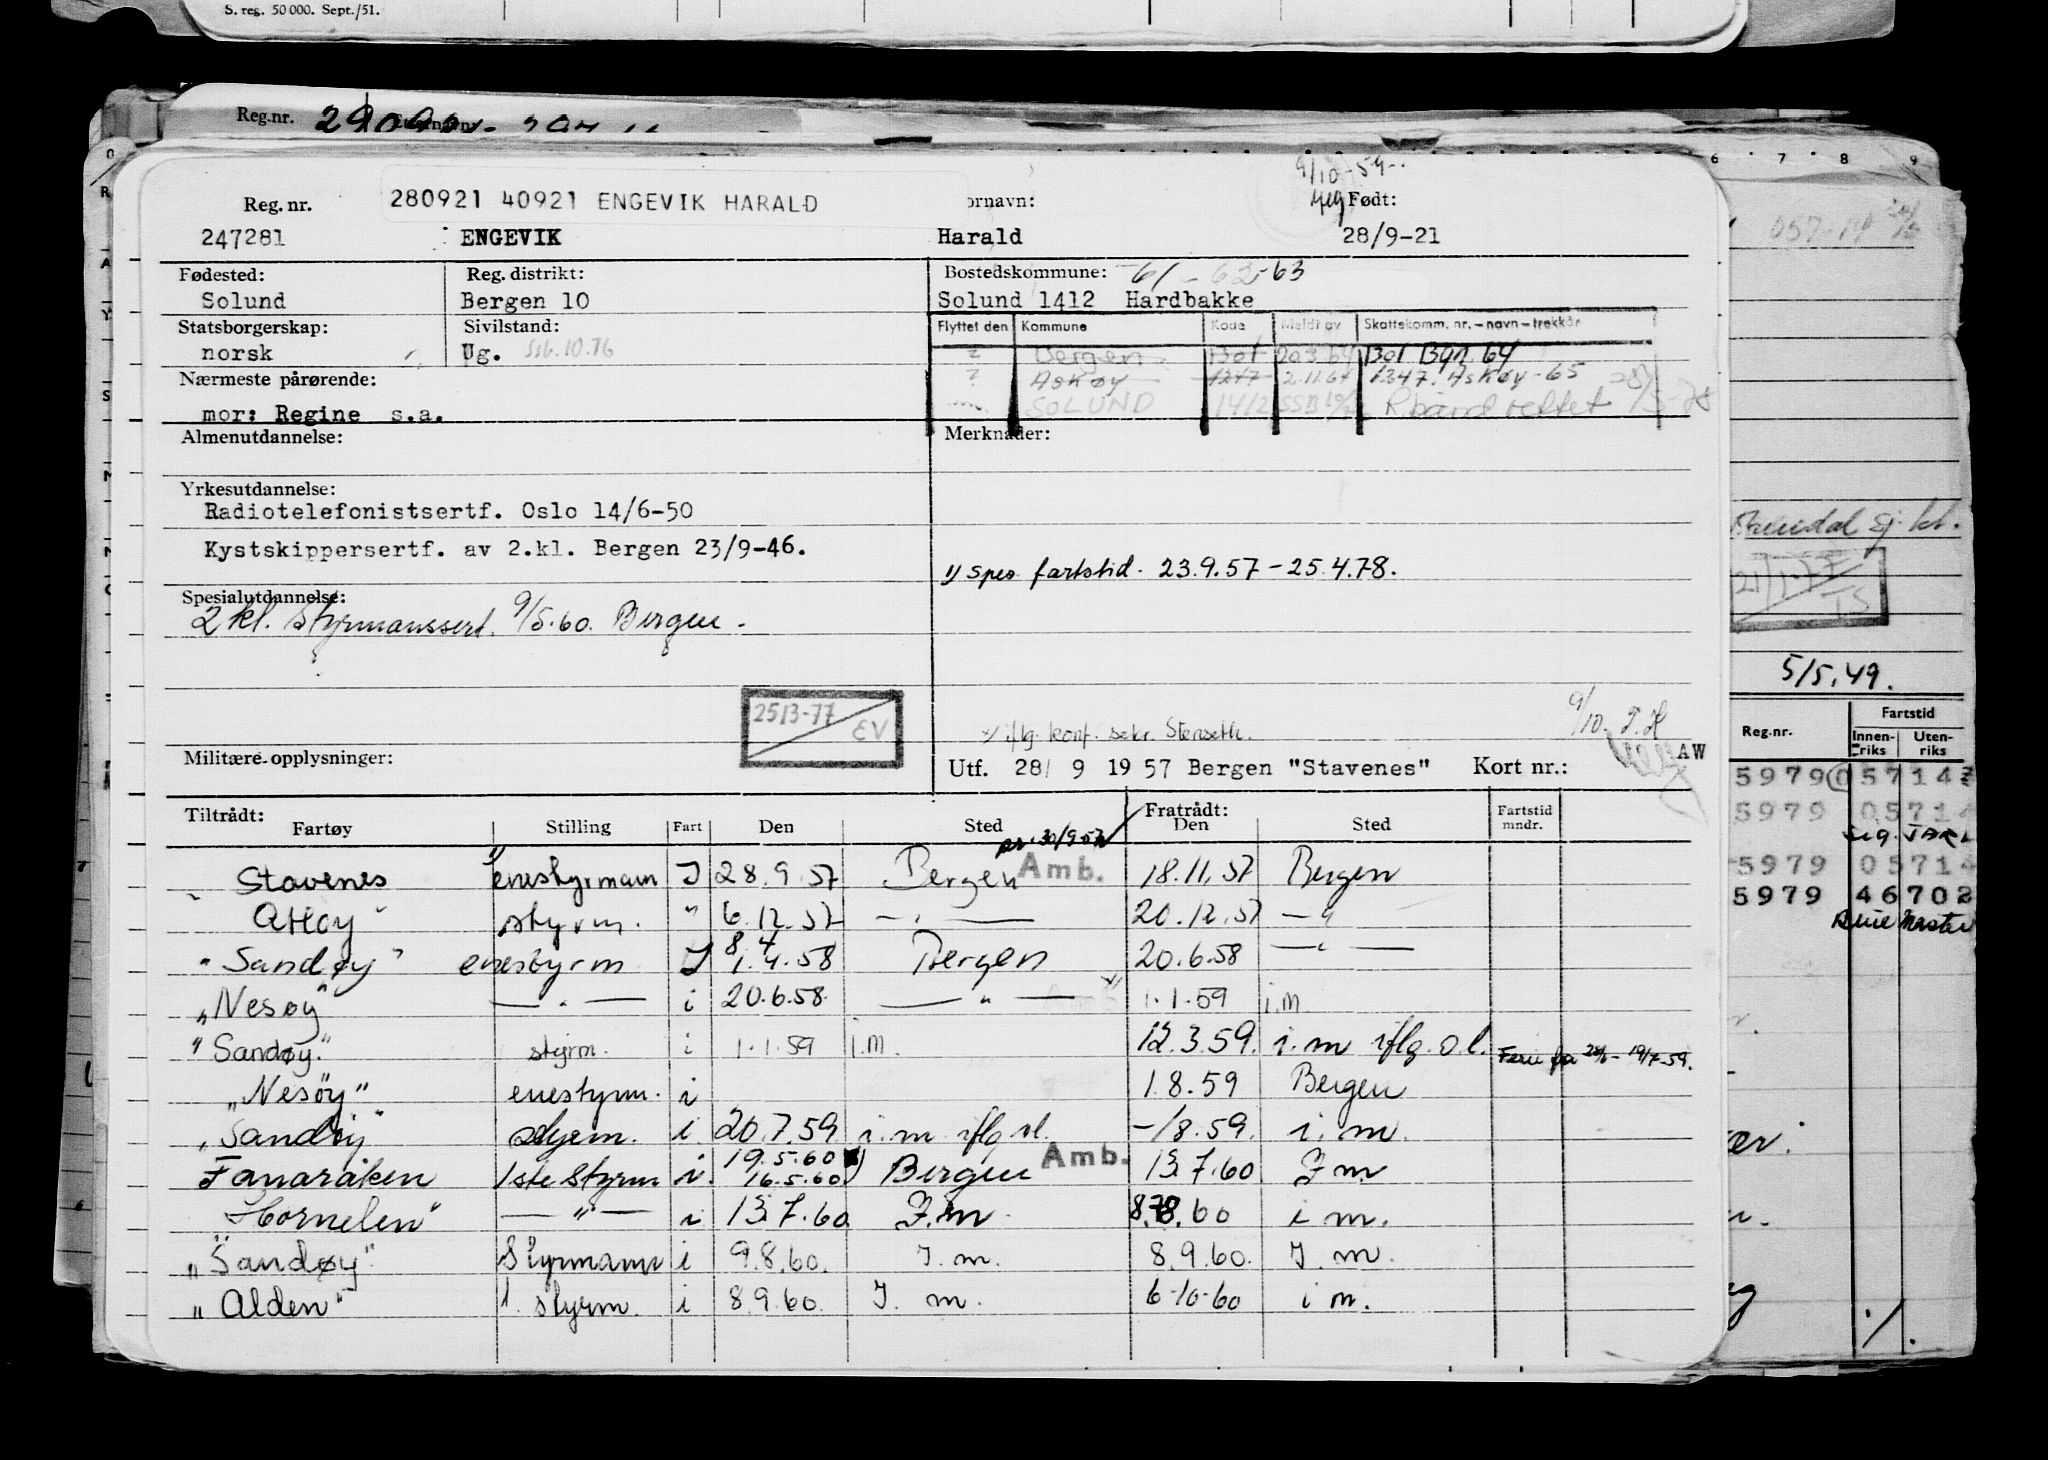 S. reg. 50 000. Sept./51.
Reg.nr.
9/10-59
Reg. nr. 280921 40921 ENGEVIK HARALD ornavn: Født:
247281 ENGEVIK Harald 28/9-21
Fødested: Reg. distrikt: Bostedskommune: -61-62-63
Solund Bergen 10 Solund 1412 Hardbakke
Statsborgerskap: Sivilstand: Flyttet den Kommune Kode Meldt av Skattekomm. nr. - navn - trekkår
norsk Ug. ? Bergen 1301 203 64 1301 Bgn 64
Nærmeste pårørende: ? Askøy 1247 2.11.64 1347. Askøy - 65
mor: Regine s.a. SOLUND 1412 rettet
Almenutdannelse: Merknader:
Yrkesutdannelse:
Radiotelefonistsertf. Oslo 14/6-50
Kystskippersertf. av 2.kl. Bergen 23/9-46.
1) spes fartstid. 23.9.57 - 25.4.78.
Spesialutdannelse:
2 kl. Styrmannssert. 9/5.60. Bergen.
25/3-77 EV
x) iflg. konf. sekr. Stenseth. 9/10. T.H
Militære opplysninger: Utf. 28/ 9 19 57 Bergen "Stavenes" Kort nr.: AW
Tiltrådt: Fratrådt:
Fartøy Stilling Fart Den Sted Den Sted Fartstid mndr.
Stavenes enestyrmann I 28.9.57 Bergen Amb. 18.11.57 Bergen
Atløy styrm. " 6.12.57 — " — 20.12.57 — "
8.4
"Sandøy" enestyrm I 1.4.58 Bergen 20.6.58 — " —
"Nesøy" — " — i 20.6.58. — " — Amb 1.1.59 i.m
"Sandøy." styrm. i 1.1.59 i.m. 12.3.59. i.m iflg. o l. Ferie fra 19/7-59.
"Nesöy" enestyrm. i 1.8.59 Bergen
"Sandöy" styrm. i 20.7.59 i.m iflg ol. -/8.59. i.m.
19.5.60
Fanaråken 1ste Styrm i. 16.5.60 Bergen Amb. 13.7.60 I m
"Hornelen" — " — i 13.7.60 I.m. 8.8.60 i m.
"Sandøy" Styrmann i 9.8.60. I.m. 8.9.60. I m.
"Alden" 1. styrm. i 8.9.60. I. m. 6-10-60 i m.
6 7 8 9
5/5.49.
Reg.nr. Fartstid
Innenriks Utenriks
5979 05714
5979 05714
5979 05714
5979 46702